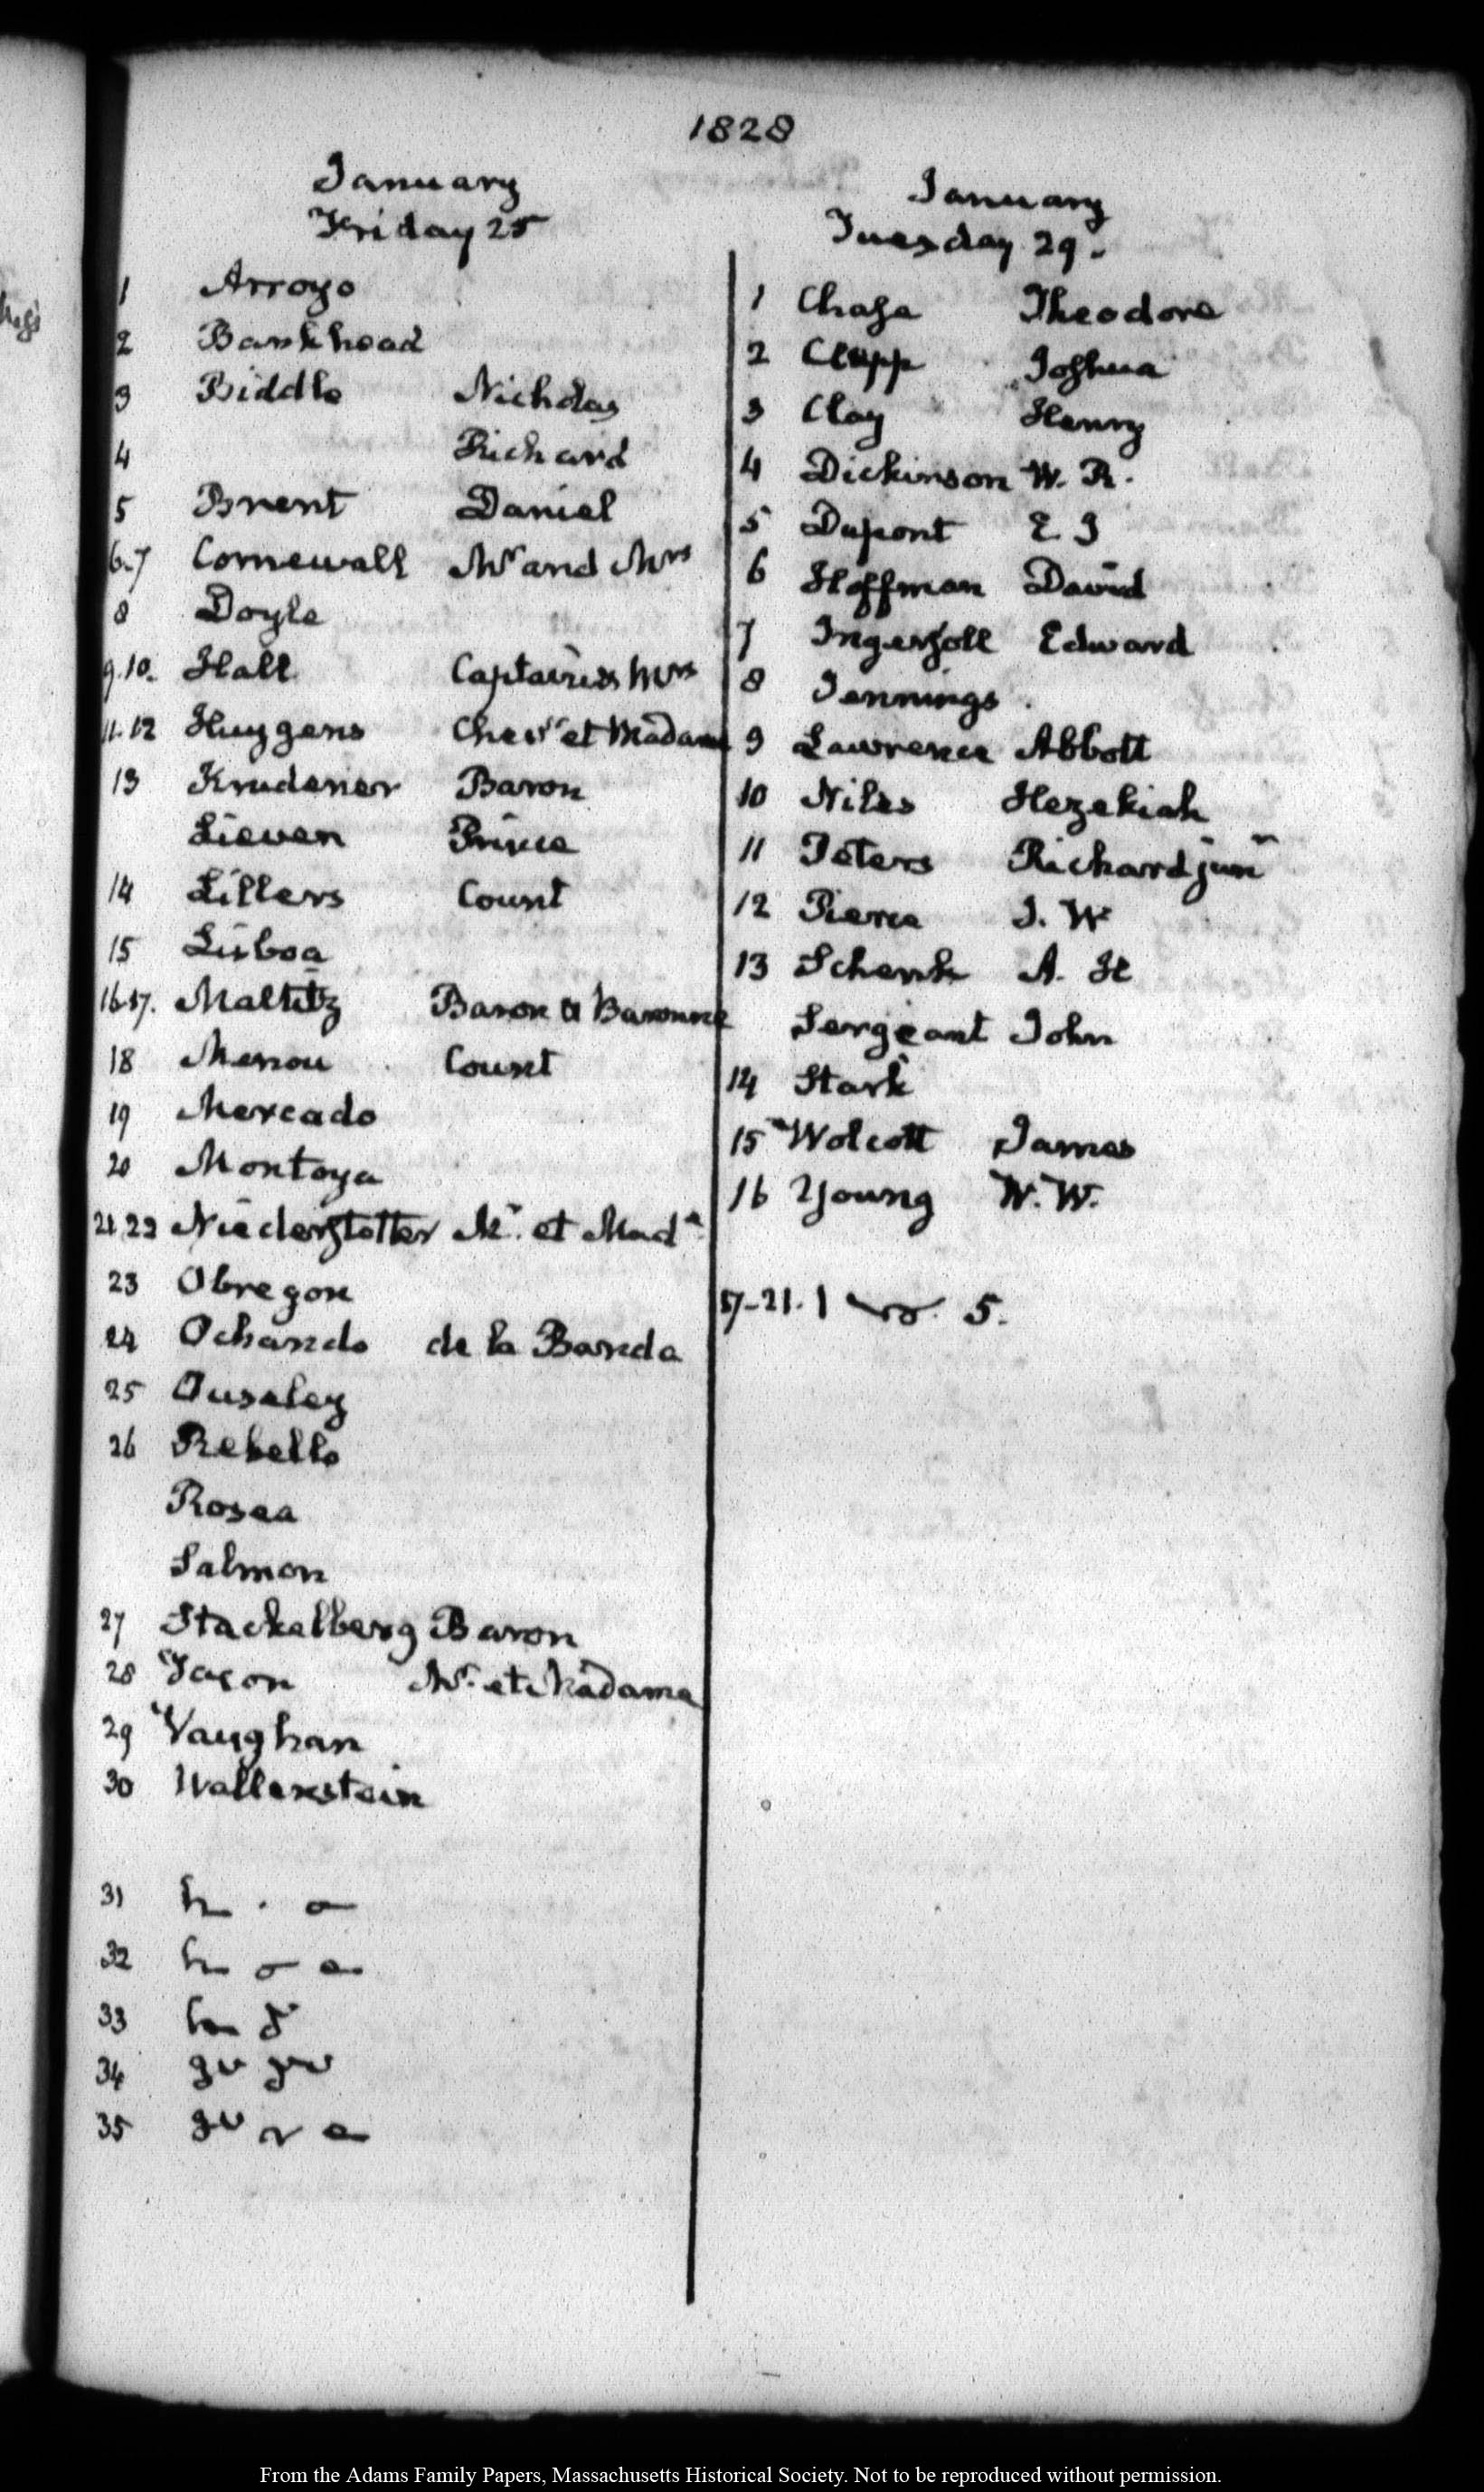 1828
January
Friday 25
1 Arroyo
2 Bankhead
3 Biddle Nicholas
4 Richard
5 Brent Daniel
6-7 Cornewall Mr and Mrs
8 Doyle
9.10. Hall Captain & Mrs
11-12 Huygens Chevr et Madame
13 Krudener Baron
Lieven Prince
14 Lillers Count
15 Lisboa
16-17. Maltitz Baron & Baronne
18 Menou Count
19 Mercado
20 Montoya
21.22 Niederstetter Mr. et Made
23 Obregon
24 Ochando de la Banda
25 Ouseley
26 Rebello
Salmon
27 Stackelberg Baron
28 Mr. et Madame
29 Vaughan
30 Wallenstein
31
32
33
34
35
January
Tuesday 29.
1 Chase Theodore
2 Clapp Joshua
3 Clay Henry
4 Dickinson W. R.
5 Dupont E I
6 Hoffman David
7 Ingersoll Edward
8 Jennings.
9 Lawrence Abbott
10 Niles Hezekiah
11 Peters Richard junr
12 Pierce J. W
13 Schenk A. H
Sergeant John
14 Stark
15 Wolcott James
16 Young W. W.
17-21. 5.
From the Adams Family Papers, Massachusetts Historical Society. Not to be reproduced without permission.